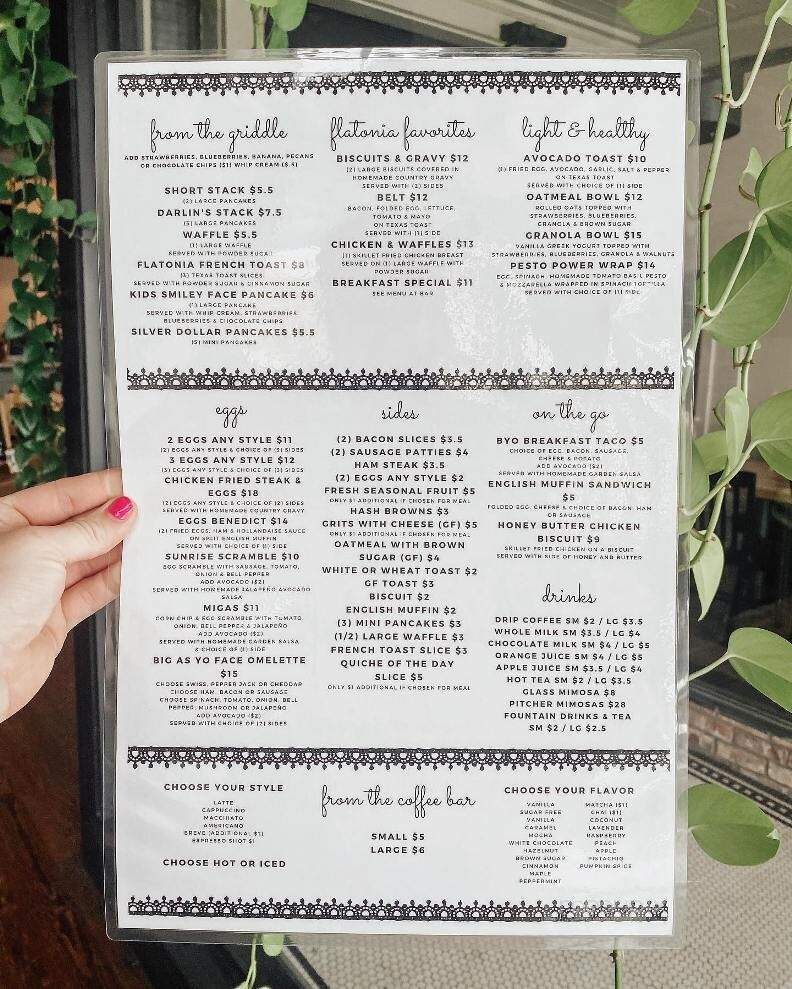 from the griddle
ADD STRAWBERRIES, BLUEBERRIES, BANANA, PECANS
OR CHOCOLATE CHIPS ($1) WHIP CREAM ($.5)
SHORT STACK $5.5
(2) LARGE PANCAKES
DARLIN'S STACK $7.5
(3) LARGE PANCAKES
WAFFLE $5.5
(1) LARGE WAFFLE
SERVED WITH POWDER SUGAR
FLATONIA FRENCH TOAST $8
(3) TEXAS TOAST SLICES
SERVED WITH POWDER SUGAR & CINNAMON SUGAR
KIDS SMILEY FACE PANCAKE $6
(1) LARGE PANCAKE
SERVED WITH WHIP CREAM, STRAWBERRIES,
BLUEBERRIES & CHOCOLATE CHIPS
SILVER DOLLAR PANCAKES $5.5
(5) MINI PANCAKES
flatonia favorites
BISCUITS & GRAVY $12
(2) LARGE BISCUITS COVERED IN
HOMEMADE COUNTRY GRAVY
SERVED WITH (2) SIDES
BELT $12
BACON, FOLDED EGG, LETTUCE,
TOMATO & MAYO
ON TEXAS TOAST
SERVED WITH (1) SIDE
CHICKEN & WAFFLES $13
(1) SKILLET FRIED CHICKEN BREAST
SERVED ON (1) LARGE WAFFLE WITH
POWDER SUGAR
BREAKFAST SPECIAL $11
SEE MENU AT BAR
light & healthy
AVOCADO TOAST $10
(1) FRIED EGG, AVOCADO, GARLIC, SALT & PEPPER
ON TEXAS TOAST
SERVED WITH CHOICE OF (1) SIDE
OATMEAL BOWL $12
ROLLED OATS TOPPED WITH
STRAWBERRIES, BLUEBERRIES,
GRANOLA & BROWN SUGAR
GRANOLA BOWL $15
VANILLA GREEK YOGURT TOPPED WITH
STRAWBERRIES, BLUEBERRIES, GRANOLA & WALNUTS
PESTO POWER WRAP $14
EGG, SPINACH, HOMEMADE TOMATO BASIL PESTO
& MOZZARELLA WRAPPED IN SPINACH TORTILLA
SERVED WITH CHOICE OF (1) SIDE
eggs
2 EGGS ANY STYLE $11
(2) EGGS ANY STYLE & CHOICE OF (3) SIDES
3 EGGS ANY STYLE $12
(3) EGGS ANY STYLE & CHOICE OF (3) SIDES
CHICKEN FRIED STEAK &
EGGS $18
(2) EGGS ANY STYLE & CHOICE OF (2) SIDES
SERVED WITH HOMEMADE COUNTRY GRAVY
EGGS BENEDICT $14
(2) FRIED EGGS, HAM & HOLLANDAISE SAUCE
ON SPLIT ENGLISH MUFFIN
SERVED WITH CHOICE OF (1) SIDE
SUNRISE SCRAMBLE $10
EGG SCRAMBLE WITH SAUSAGE, TOMATO,
ONION & BELL PEPPER
ADD AVOCADO ($2)
SERVED WITH HOMEMADE JALAPEÑO AVOCADO
SALSA
MIGAS $11
CORN CHIP & EGG SCRAMBLE WITH TOMATO,
ONION, BELL PEPPER & JALAPEÑO
ADD AVOCADO ($2)
SERVED WITH HOMEMADE GARDEN SALSA
& CHOICE OF (1) SIDE
BIG AS YO FACE OMELETTE
$15
CHOOSE SWISS, PEPPER JACK OR CHEDDAR
CHOOSE HAM, BACON OR SAUSAGE
CHOOSE SPINACH, TOMATO, ONION, BELL
PEPPER, MUSHROOM OR JALAPEÑO
ADD AVOCADO ($2)
SERVED WITH CHOICE OF (2) SIDES
sides
(2) BACON SLICES $3.5
(2) SAUSAGE PATTIES $4
HAM STEAK $3.5
(2) EGGS ANY STYLE $2
FRESH SEASONAL FRUIT $5
ONLY $1 ADDITIONAL IF CHOSEN FOR MEAL
HASH BROWNS $3
GRITS WITH CHEESE (GF) $5
ONLY $1 ADDITIONAL IF CHOSEN FOR MEAL
OATMEAL WITH BROWN
SUGAR (GF) $4
WHITE OR WHEAT TOAST $2
GF TOAST $3
BISCUIT $2
ENGLISH MUFFIN $2
(3) MINI PANCAKES $3
(1/2) LARGE WAFFLE $3
FRENCH TOAST SLICE $3
QUICHE OF THE DAY
SLICE $5
ONLY $1 ADDITIONAL IF CHOSEN FOR MEAL
on the go
BYO BREAKFAST TACO $5
CHOICE OF EGG, BACON, SAUSAGE,
CHEESE & POTATO
ADD AVOCADO ($2)
SERVED WITH HOMEMADE GARDEN SALSA
ENGLISH MUFFIN SANDWICH
$5
FOLDED EGG, CHEESE & CHOICE OF BACON, HAM
OR SAUSAGE
HONEY BUTTER CHICKEN
BISCUIT $9
SKILLET FRIED CHICKEN ON A BISCUIT
SERVED WITH SIDE OF HONEY AND BUTTER
drinks
DRIP COFFEE SM $2 / LG $3.5
WHOLE MILK SM $3.5 / LG $4
CHOCOLATE MILK SM $4 / LG $5
ORANGE JUICE SM $4 / LG $5
APPLE JUICE SM $3.5 / LG $4
HOT TEA SM $2 / LG $3.5
GLASS MIMOSA $8
PITCHER MIMOSAS $28
FOUNTAIN DRINKS & TEA
SM $2 / LG $2.5
CHOOSE YOUR STYLE
LATTE
CAPPUCCINO
MACCHIATO
AMERICANO
BREVE (ADDITIONAL $1)
ESPRESSO SHOT $1
CHOOSE HOT OR ICED
from the coffee bar
SMALL $5
LARGE $6
CHOOSE YOUR FLAVOR
VANILLA
SUGAR FREE
VANILLA
CARAMEL
MOCHA
WHITE CHOCOLATE
HAZELNUT
BROWN SUGAR
CINNAMON
MAPLE
PEPPERMINT
MATCHA ($1)
CHAI ($1)
COCONUT
LAVENDER
RASPBERRY
PEACH
APPLE
PISTACHIO
PUMPKIN SPICE